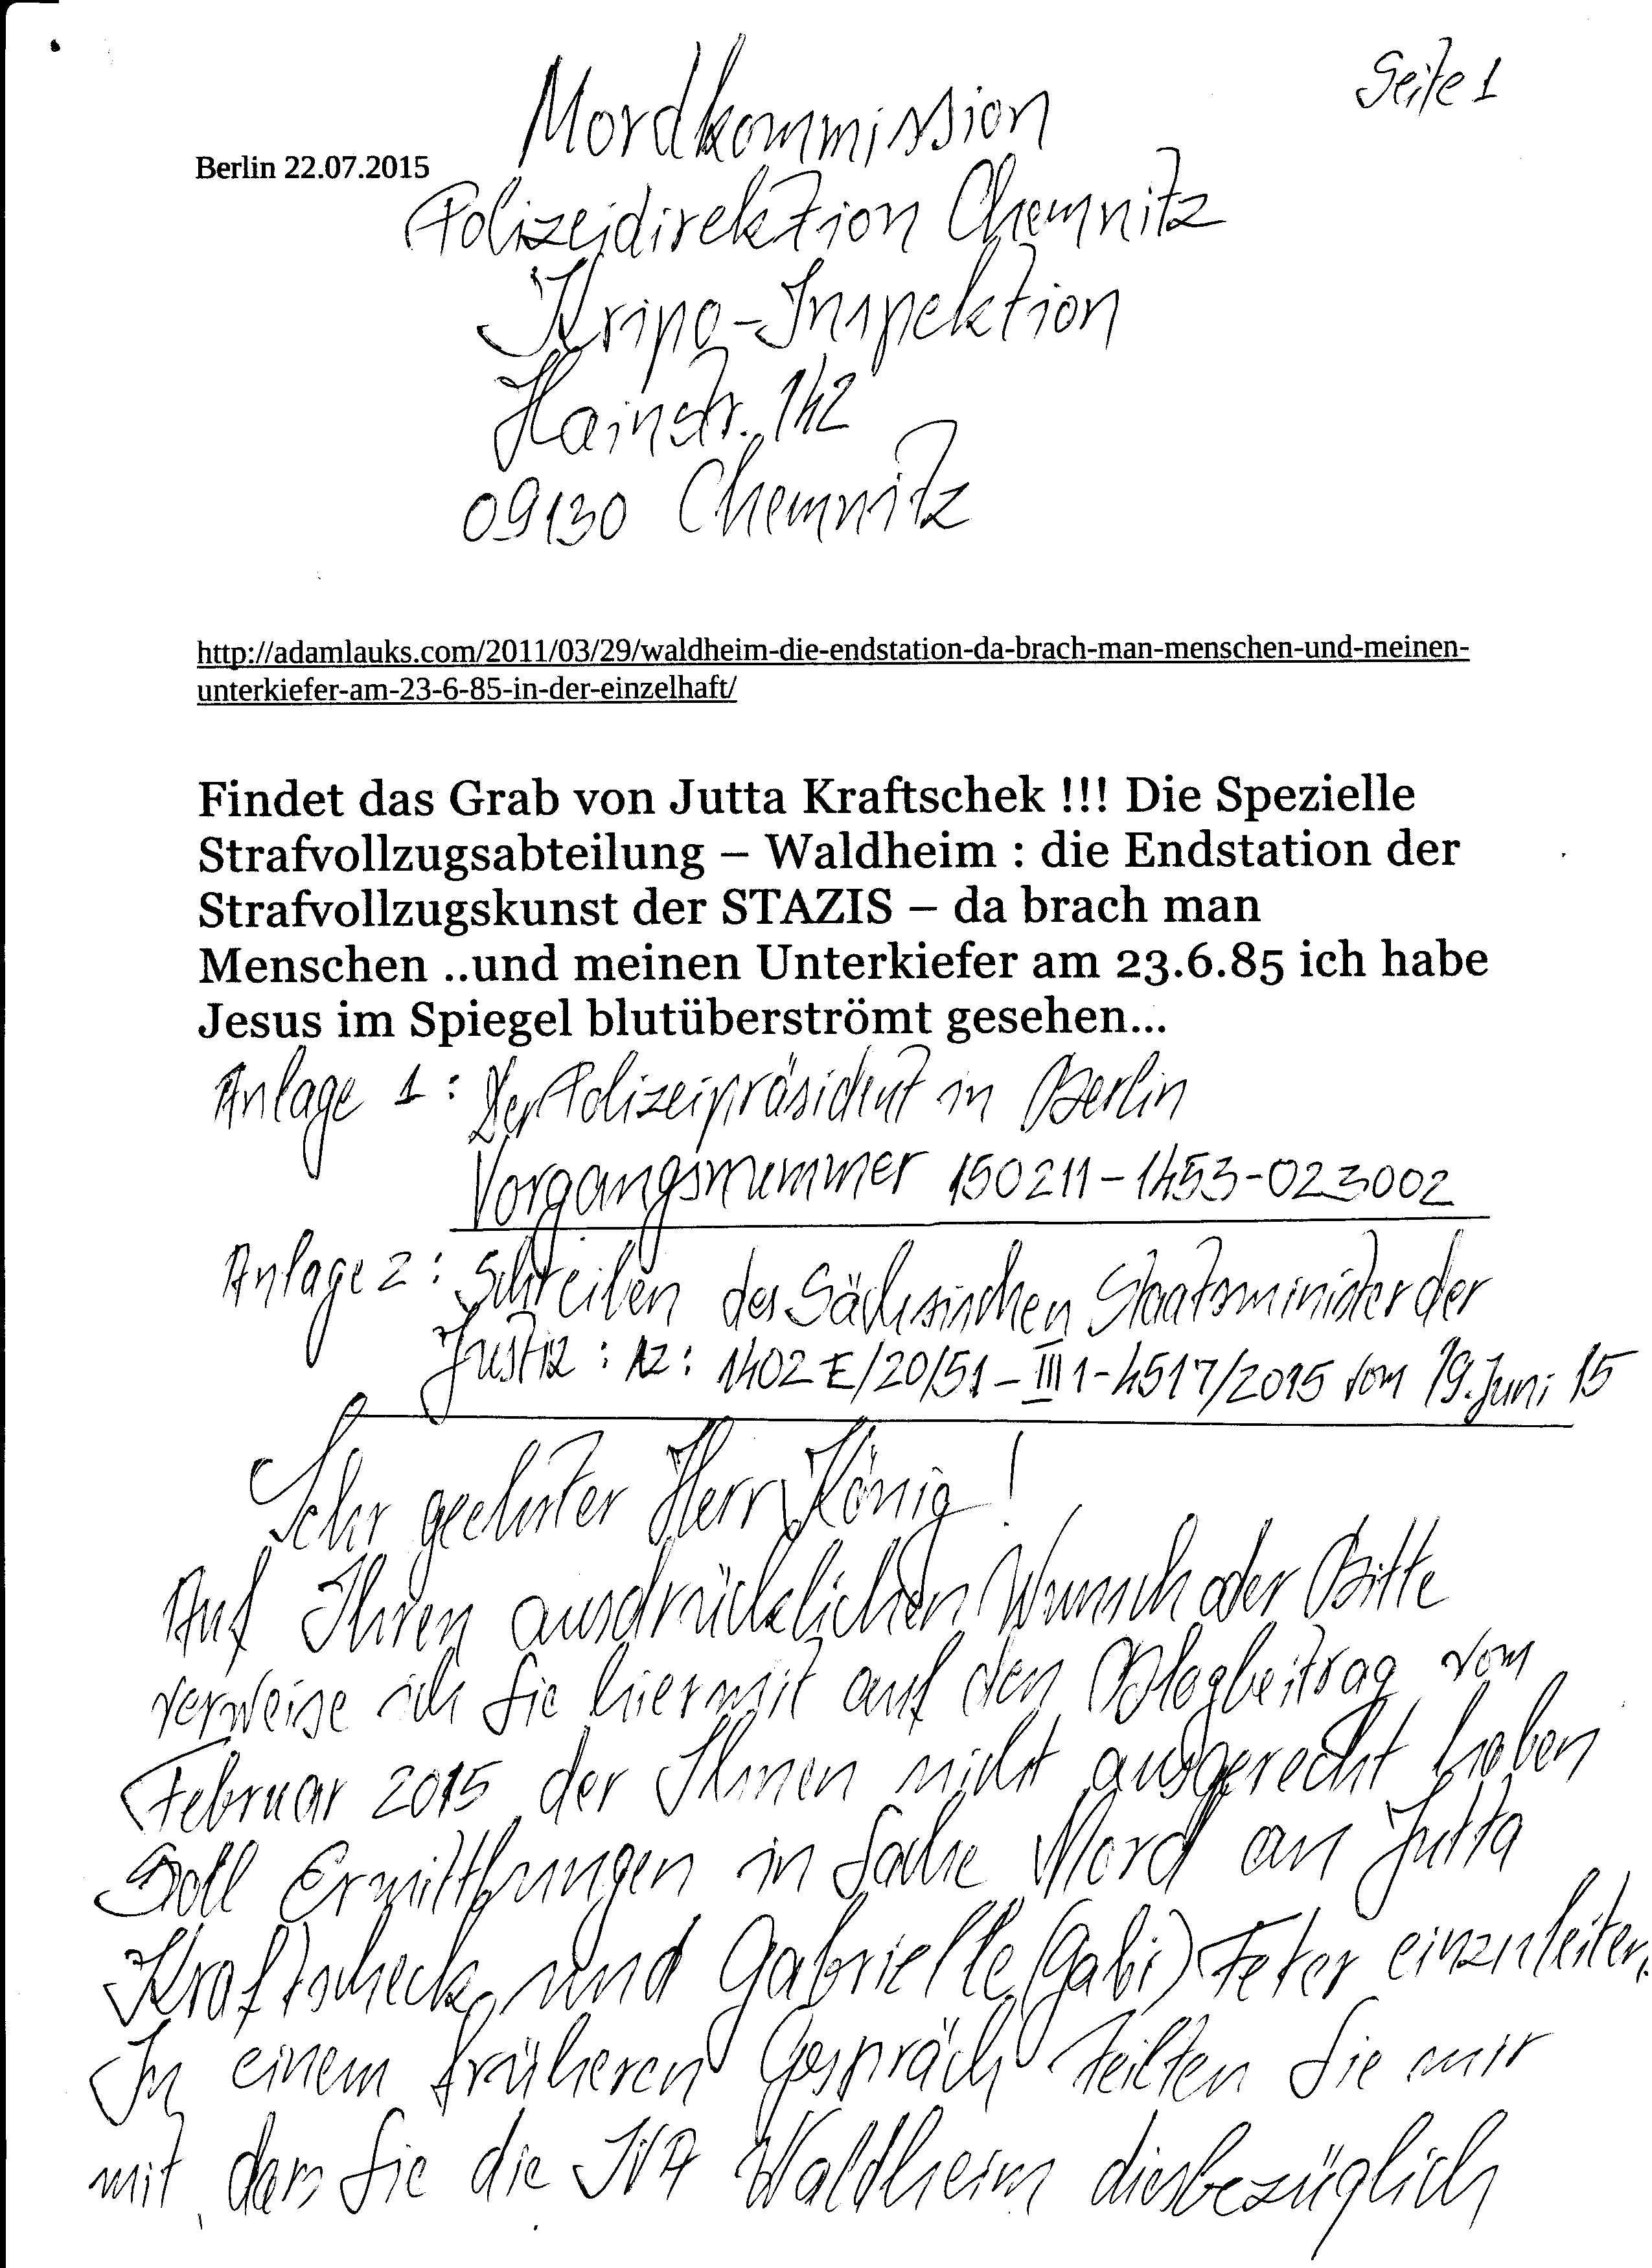 Seite 1
Mordkommission
Berlin 22.07.2015
Polizeidirektion Chemnitz
Kripo-Inspektion
Hainstr. 142
09130 Chemnitz
http://adamlauks.com/2011/03/29/waldheim-die-endstation-da-brach-man-menschen-und-meinen-
unterkiefer-am-23-6-85-in-der-einzelhaft/
Findet das Grab von Jutta Kraftschek !!! Die Spezielle
Strafvollzugsabteilung – Waldheim : die Endstation der
Strafvollzugskunst der STAZIS – da brach man
Menschen ..und meinen Unterkiefer am 23.6.85 ich habe
Jesus im Spiegel blutüberströmt gesehen...
Anlage 1 : Der Polizeipräsident in Berlin
Vorgangsnummer 150211-1453-023002
Anlage 2 : Schreiben des Sächsischen Staatsminister der
Justiz : AZ : 1402 E/20/51-III1-4517/2015 vom 19. Juni 15
Sehr geehrter Herr König !
Auf Ihren ausdrücklichen Wunsch oder Bitte
verweise ich Sie hiermit auf den Blogbeitrag vom
Februar 2015 der Ihnen nicht ausgereicht haben
soll Ermittlungen in Sache Mord an Jutta
Kraftscheck und Gabrielle (Gabi) Feter einzuleiten.
In einem früheren Gespräch teilten Sie mir
mit, dass Sie die JVA Waldheim diesbezüglich